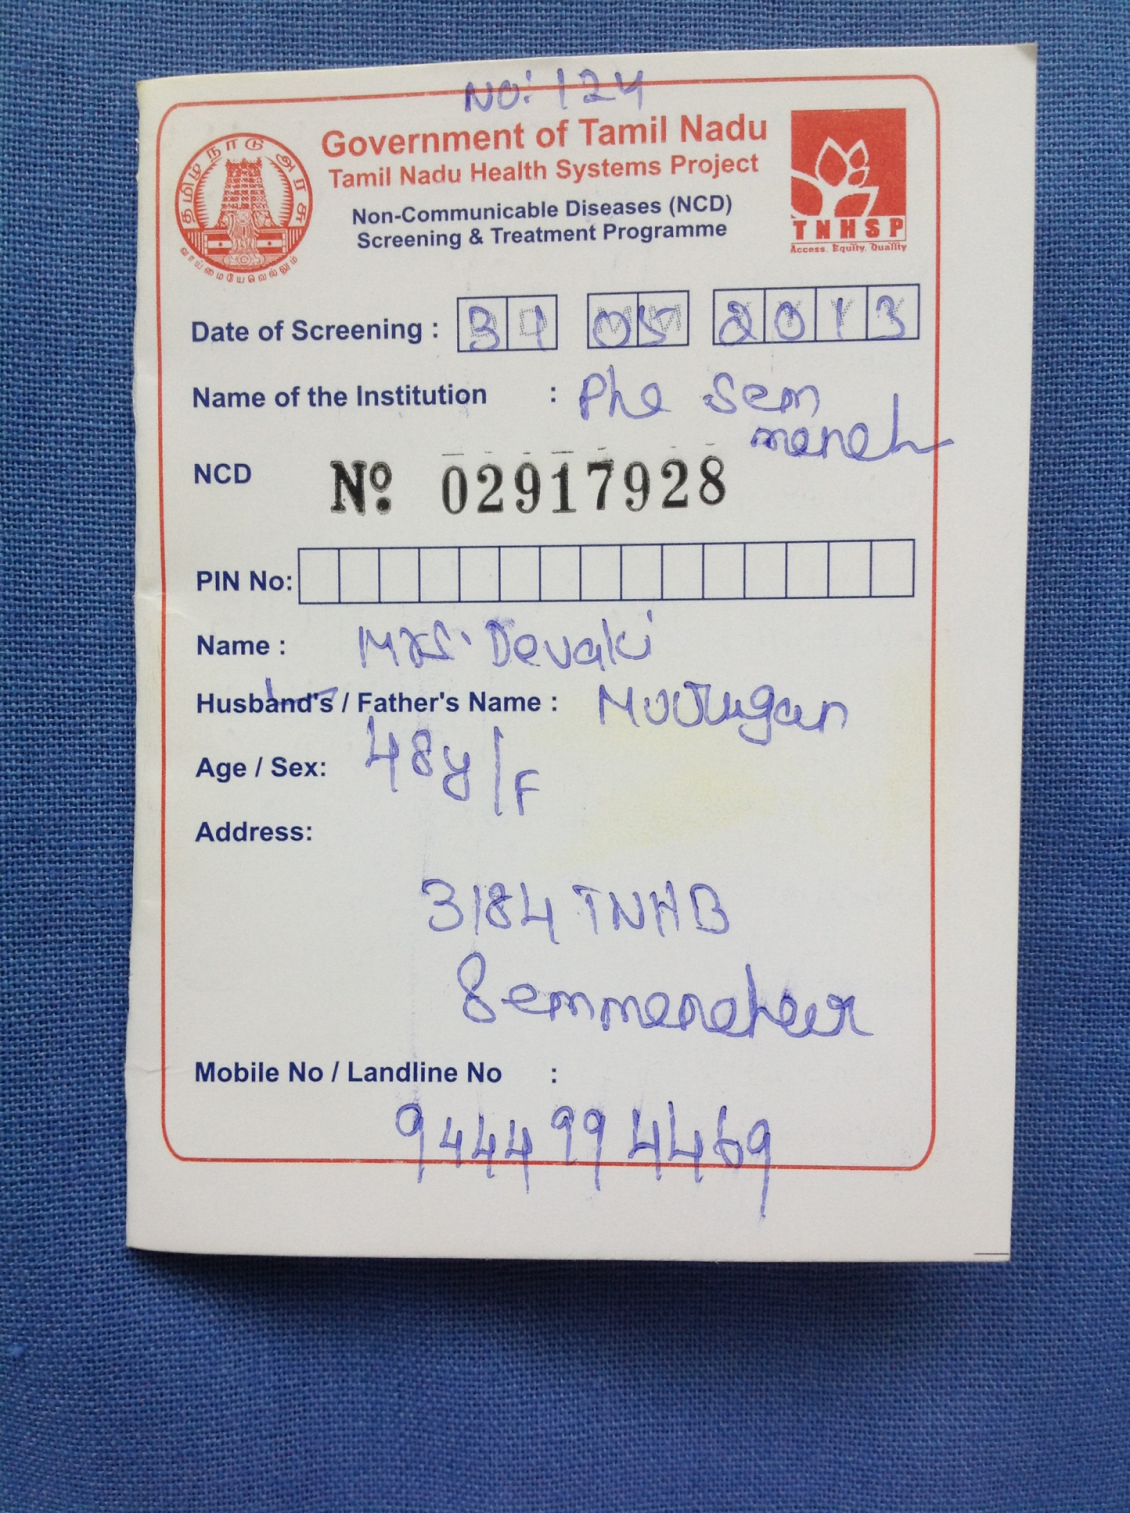 No: 124
Government of Tamil Nadu
Tamil Nadu Health Systems Project
Non-Communicable Diseases (NCD)
Screening & Treatment Programme
தமிழ்நாடு அரசு
வாய்மையே வெல்லும்
TNHSP
Access. Equity. Quality
Date of Screening : 31 05 2013
Name of the Institution : Phc Sem
NCD No: 02917928
PIN No:
Name : Mrs. Devaki
Husband's / Father's Name : Murugan
Age / Sex: 48y/F
Address:
3184 TNHB
Mobile No / Landline No :
9444994469